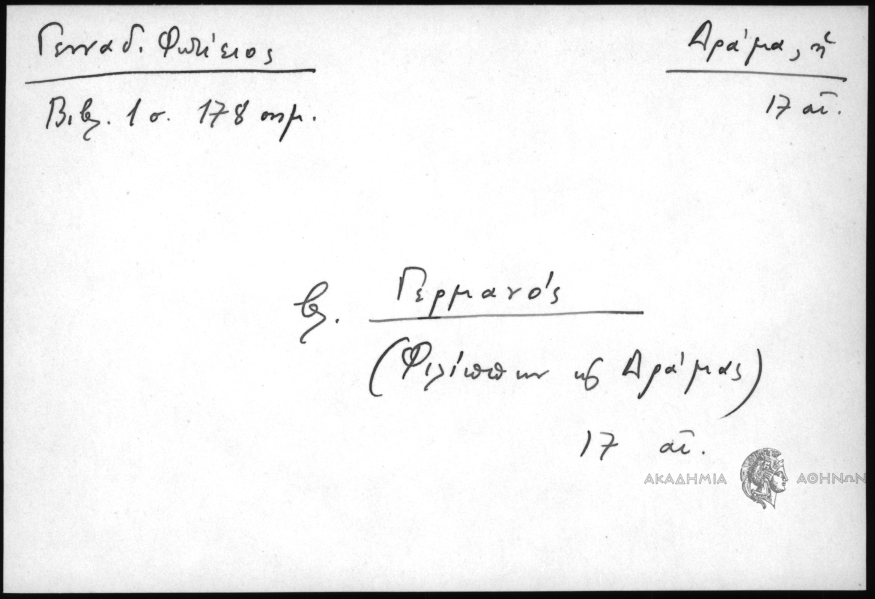 Γενναδ. Φωτίειος Δράμας, ἡ
Βιβλ. 1 σ. 178 σημ. 17 αἰ.
βλ. Γερμανός
(Φιλίππων καὶ Δράμας)
17 αἰ.
ΑΚΑΔΗΜΙΑ ΑΘΗΝΩΝ